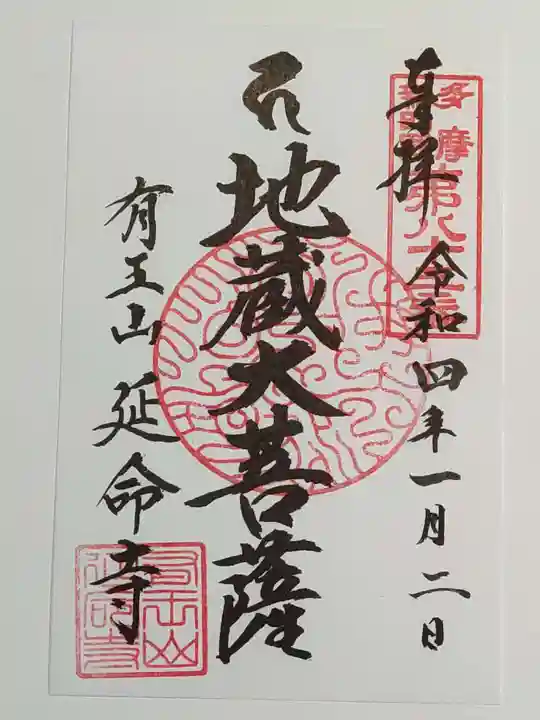 奉拝 令和四年一月二日
地蔵大菩薩
有王山 延命寺
多摩
第八十三